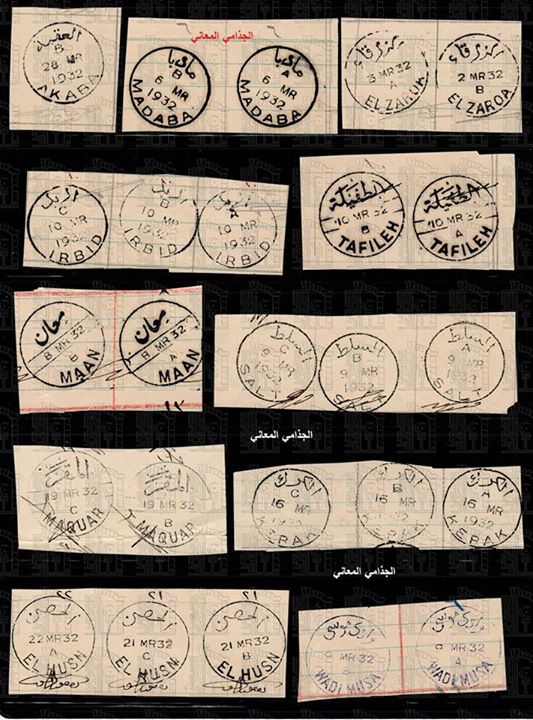 العقبة
B
28 MR
1932
AKABA
الجذامي المعاني
مادبا
B
6 MR
1932
MADABA
مادبا
A
6 MR
1932
MADABA
3 MR 32
A
EL ZARQA
2 MR 32
B
EL ZARQA
C
10 MR
1932
IRBID
B
10 MR
1932
IRBID
A
10 MR
1932
IRBID
الطفيلة
10 MR 32
B
TAFILEH
الطفيلة
10 MR 32
A
TAFILEH
معان
8 MR 32
B
MAAN
معان
8 MR 32
A
MAAN
السلط
C
9 MR
1932
SALT
السلط
B
9 MR
1932
SALT
السلط
A
9 MR
1932
SALT
الجذامي المعاني
19 MR 32
C
MAQUAR
19 MR 32
B
MAQUAR
الكرك
C
16 MR
1932
KERAK
الكرك
B
16 MR
KERAK
الكرك
A
16 MR
1932
KERAK
الجذامي المعاني
٢٢
الحصن
22 MR 32
A
EL HUSN
٢١
الحصن
21 MR 32
C
EL HUSN
٢١
الحصن
21 MR 32
B
EL HUSN
وادي موسى
MR 32
B
WADI MUSA
وادي موسى
MR 32
A
WADI MUSA